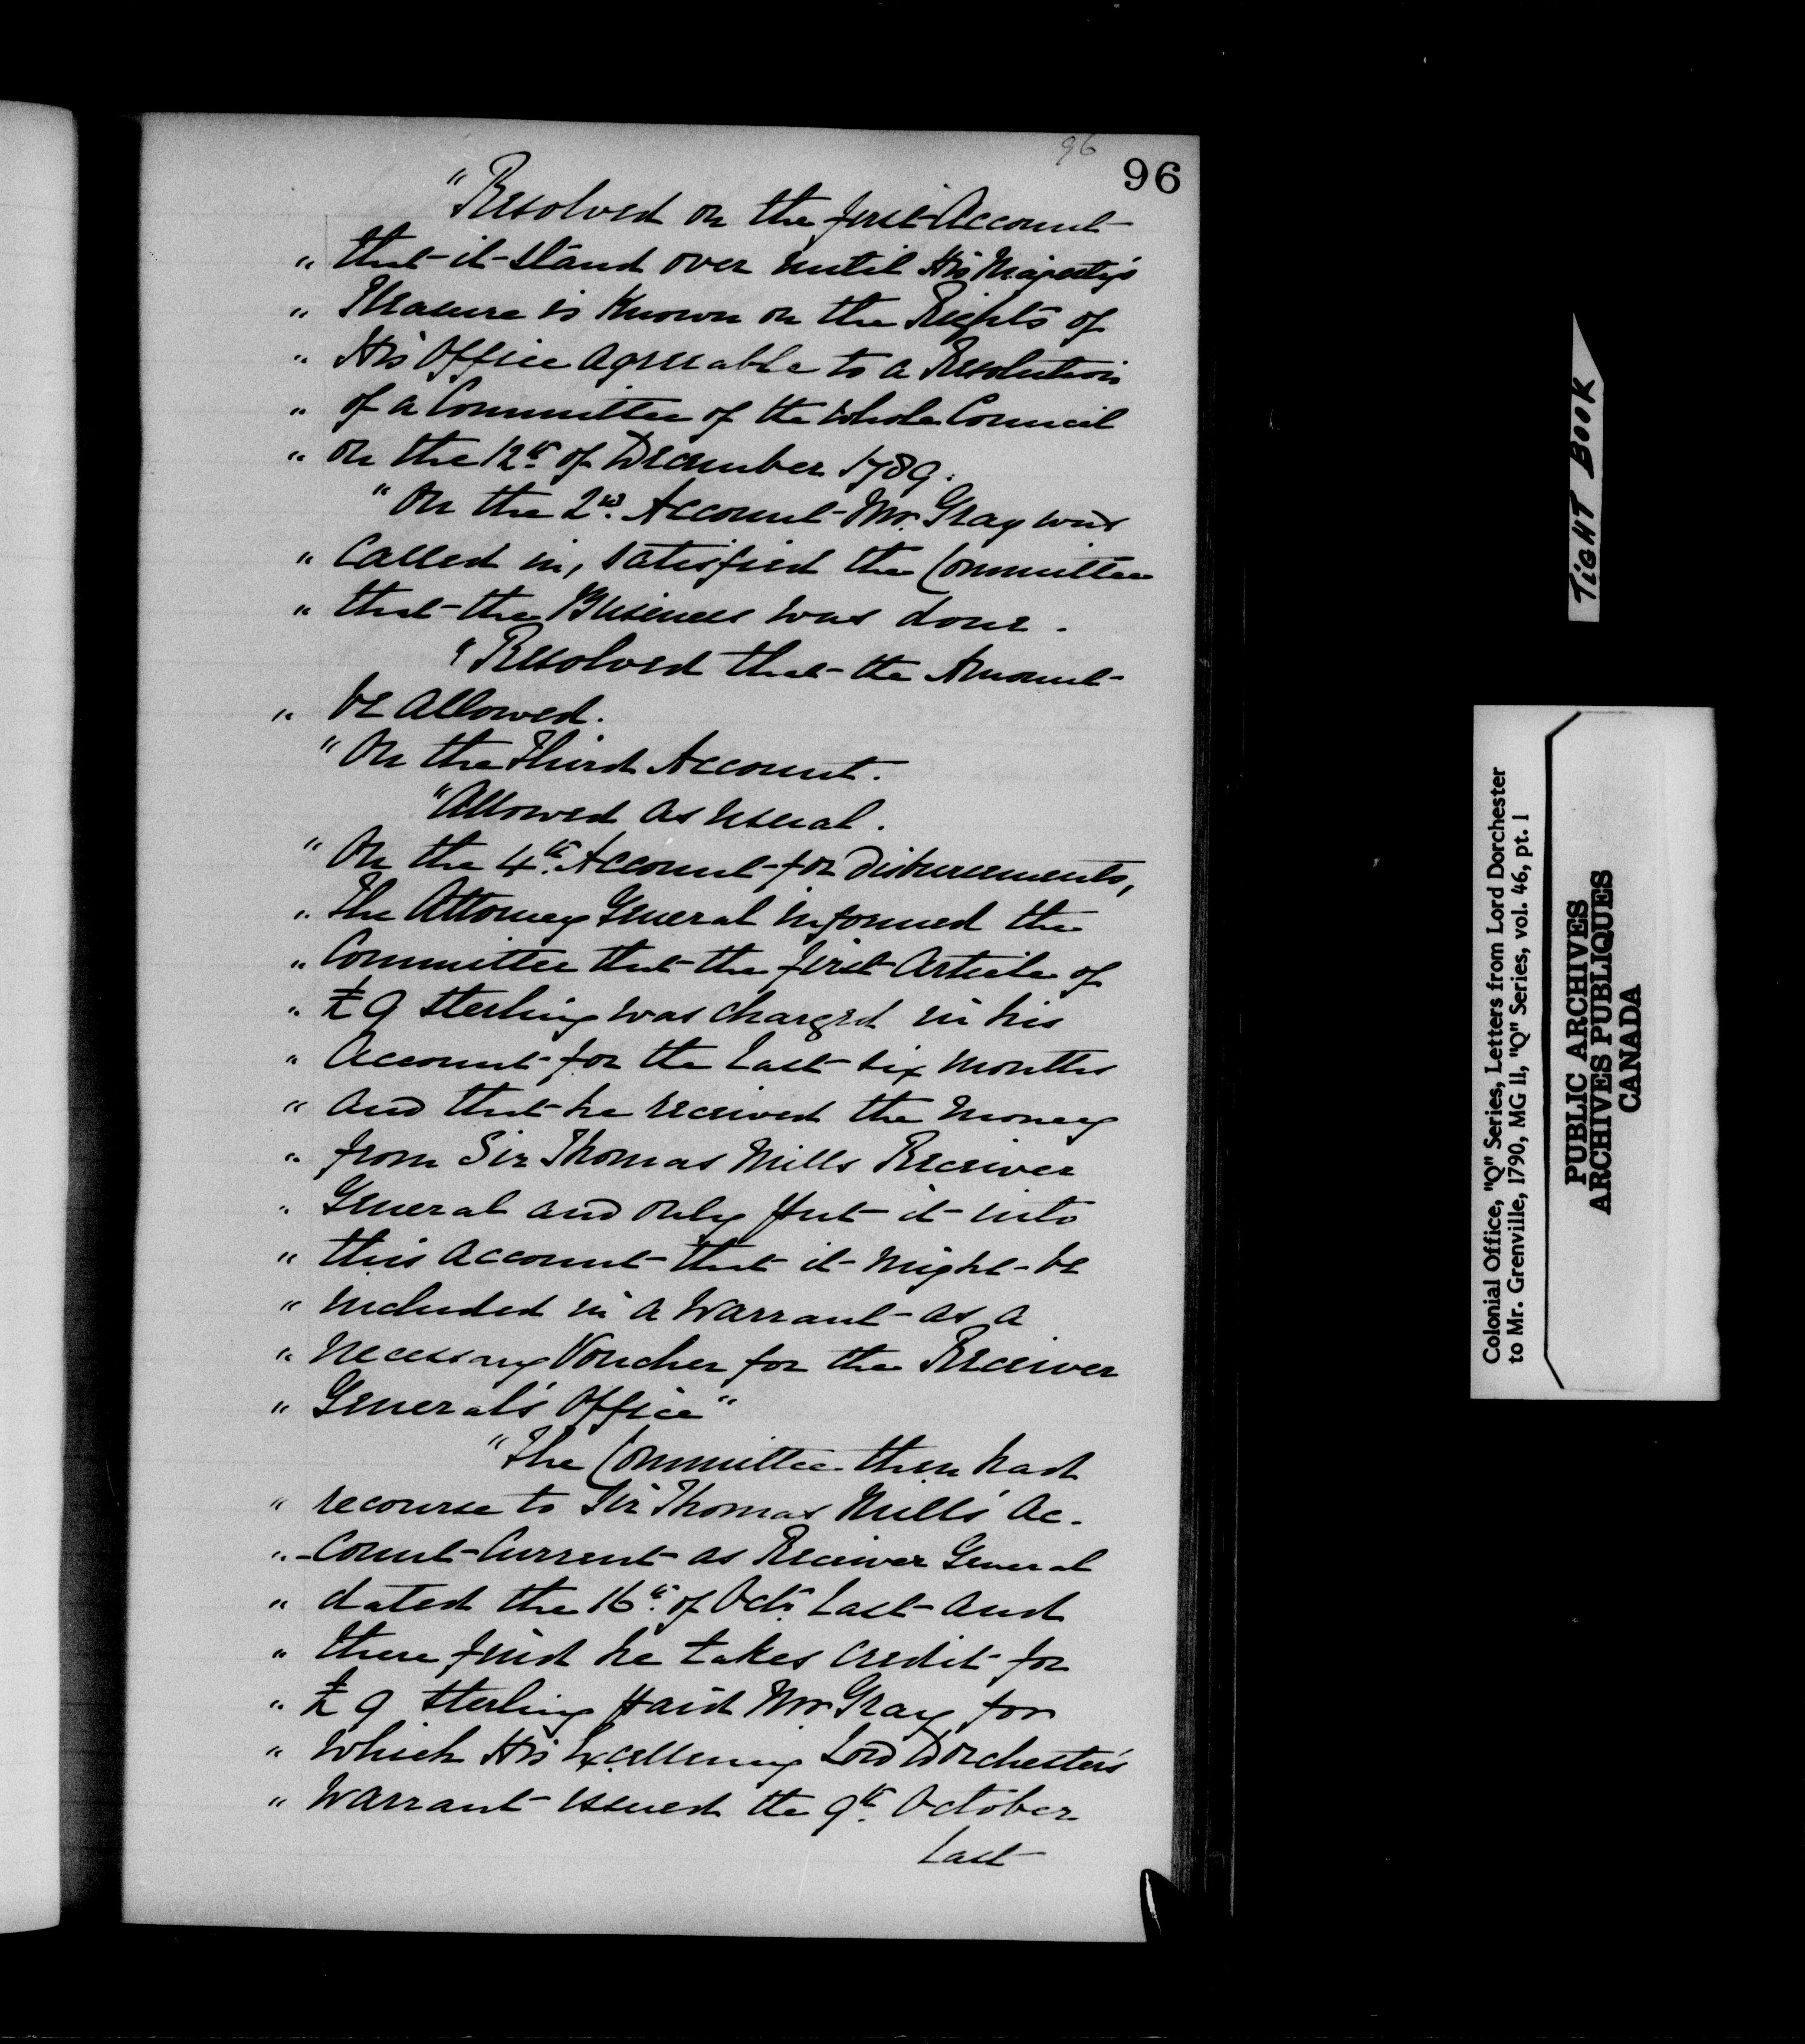 96
96
"Resolved on the first Account
" that it stand over until His Majesty's
" Pleasure is Known on the Rights of
" His Office agreeable to a Resolution
" of a Committee of the whole Council
" on the 12th of December 1789.
"On the 2nd Account Mr. Gray was
" Called in, satisfied the Committee
" that the Business was done.
"Resolved that the Amount
" be allowed.
"On the Third Account.
"Allowed as usual.
"On the 4th Account for Disbursements,
" The Attorney General informed the
" Committee that the first Article of
" £9 Sterling was charged in his
" Account for the last six months
" and that he received the money
" from Sir Thomas Mills Receiver
" General and only put it into
" this account that it might be
" included in a Warrant as a
" necessary Voucher for the Receiver
" General's Office"
"The Committee then had
" recourse to Sir Thomas Mills' Ac-
" -count Current as Receiver General
" dated the 16th of Octr last and
" there find he takes credit for
" £9 Sterling paid Mr Gray for
" which His Excellency Lord Dorchester's
" Warrant issued the 9th October
last
TIGHT BOOK
Colonial Office, "Q" Series, Letters from Lord Dorchester
to Mr. Grenville, 1790, MG 11, "Q" Series, vol. 46, pt. 1
PUBLIC ARCHIVES
ARCHIVES PUBLIQUES
CANADA